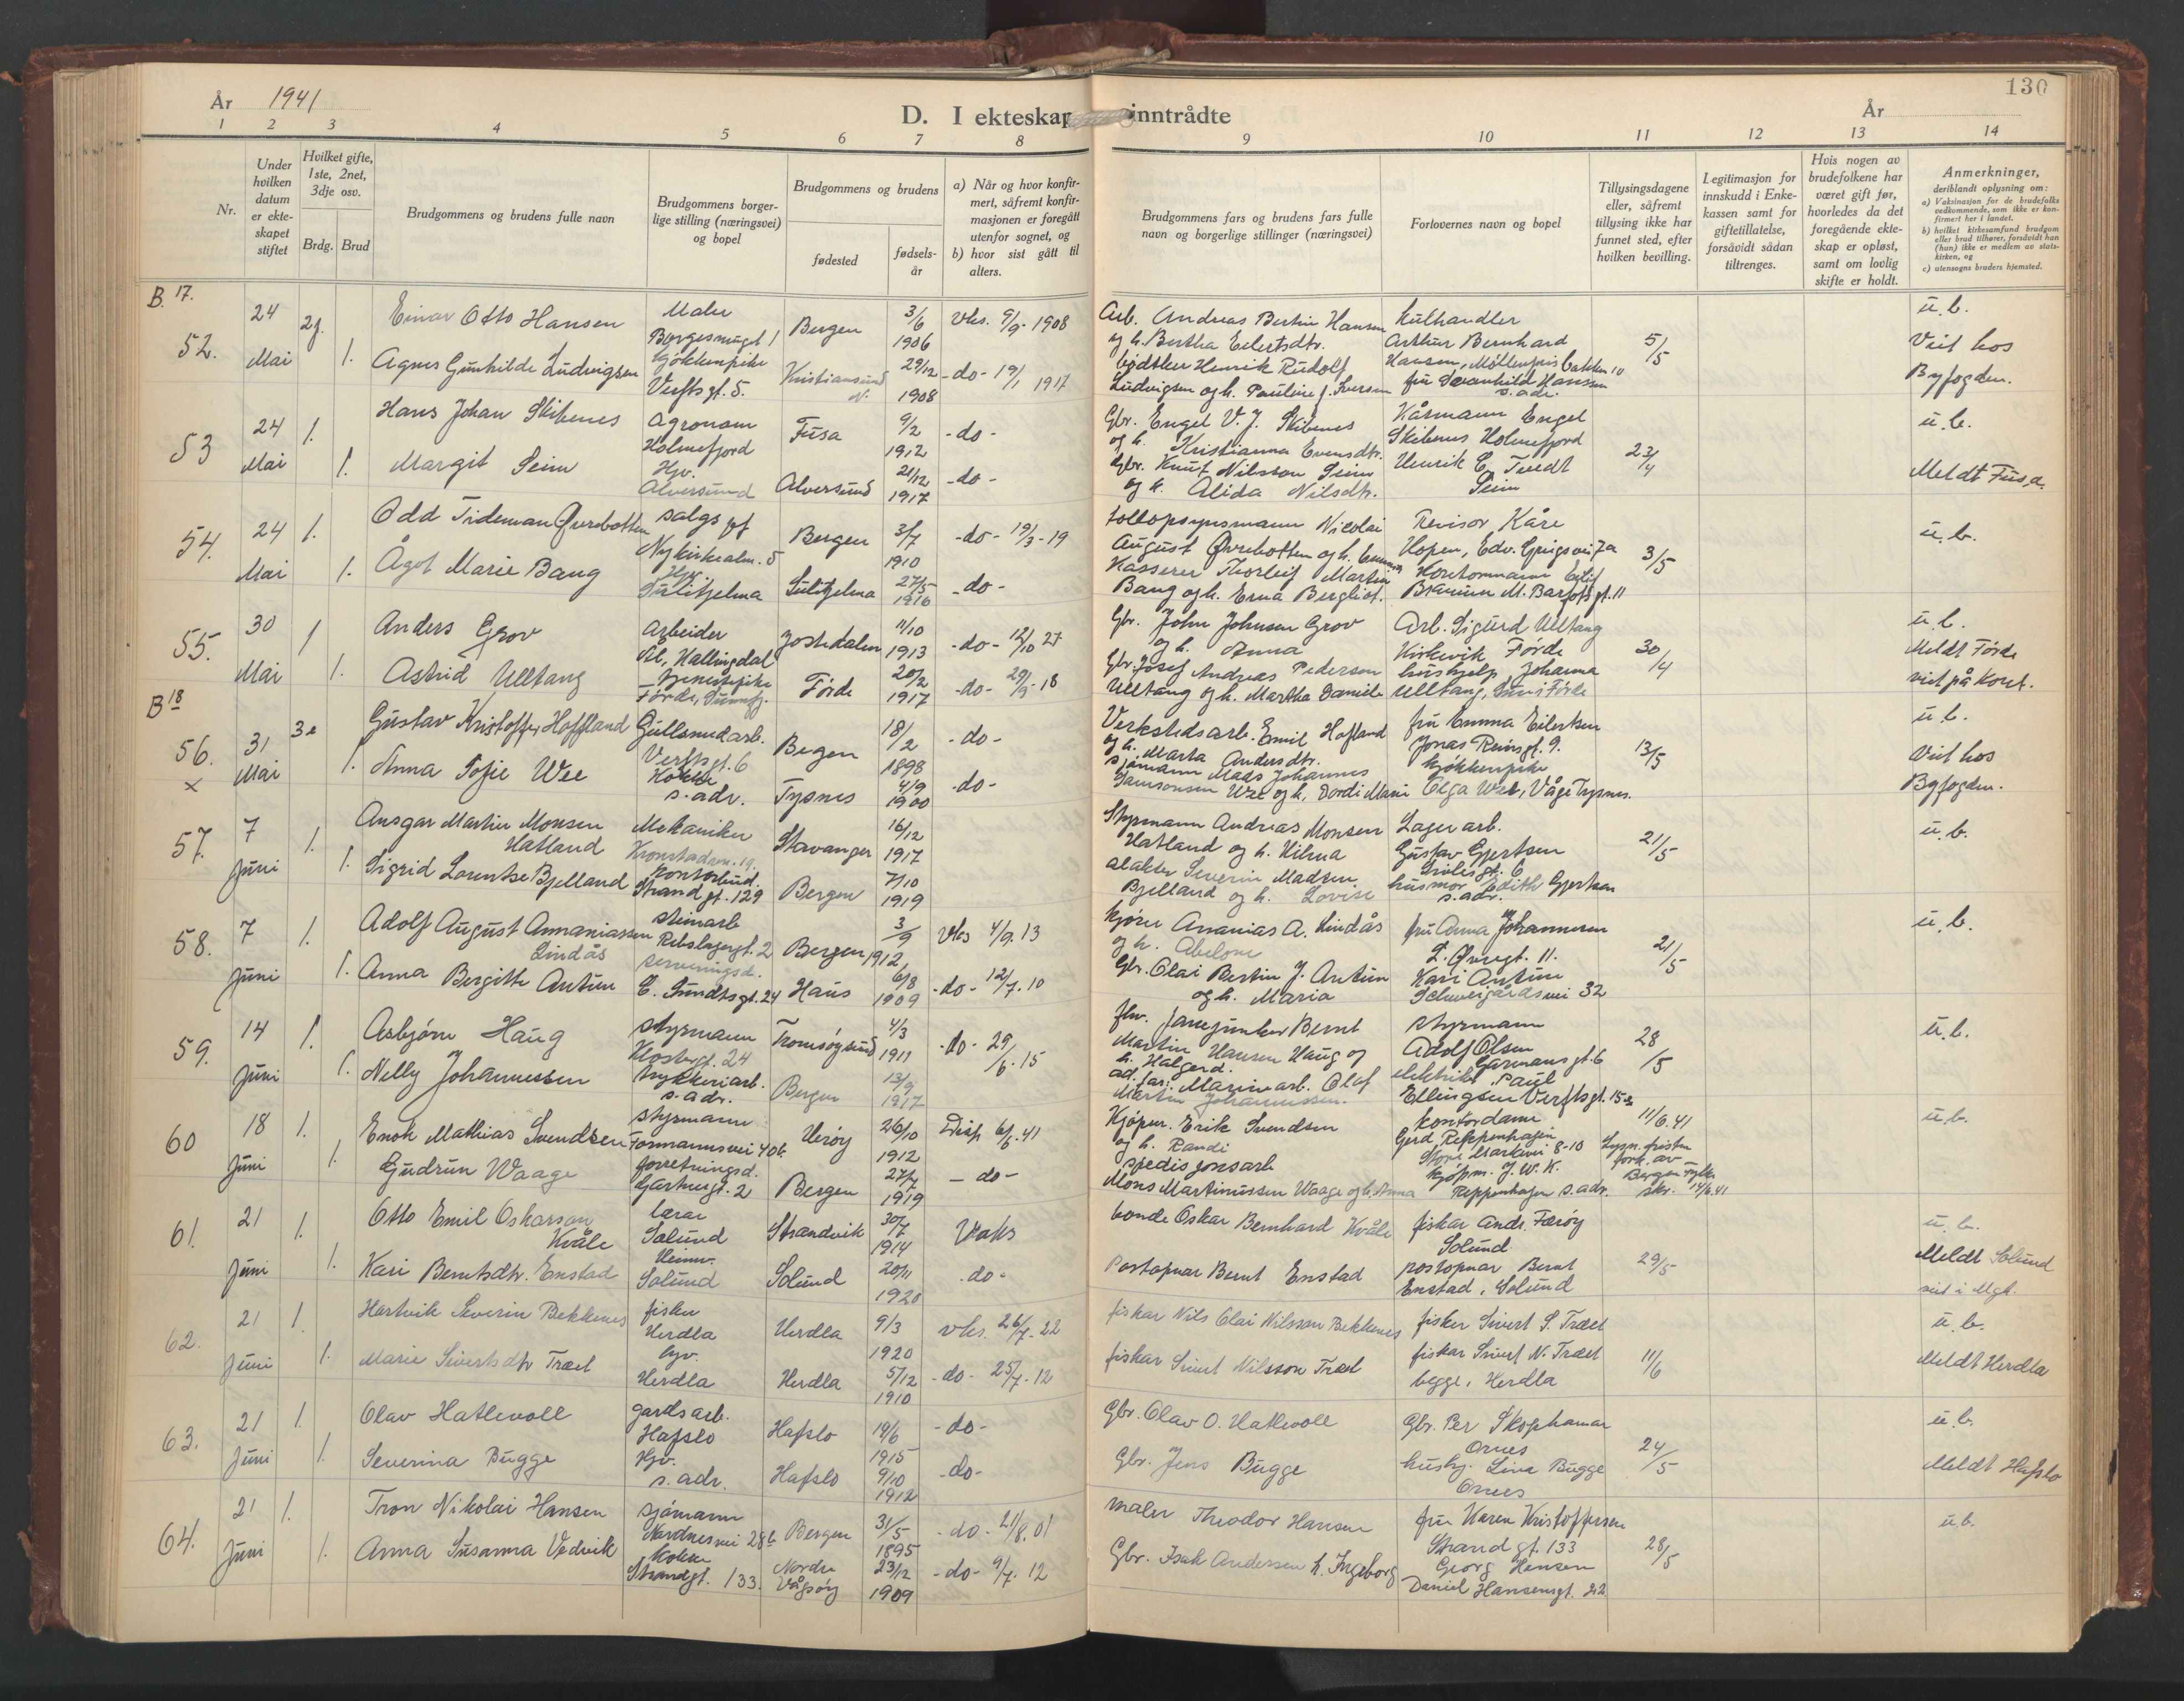 130
År 1941
D. I ekteskap inntrådte
År
1 2 3 4 5 6 7 8 9 10 11 12 13 14
Nr.
Under hvilken datum er ekteskapet stiftet
Hvilket gifte, 1ste, 2net, 3dje osv.
Brdg. Brud
Brudgommens og brudens fulle navn
Brudgommens borgerlige stilling (næringsvei) og bopel
Brudgommens og brudens
fødested
fødselsår
a) Når og hvor konfirmert, såfremt konfirmasjonen er foregått utenfor sognet, og
b) hvor sist gått til alters.
Brudgommens fars og brudens fars fulle navn og borgerlige stillinger (næringsvei)
Forlovernes navn og bopel
Tillysingsdagene eller, såfremt tillysing ikke har funnet sted, efter hvilken bevilling.
Legitimasjon for innskudd i Enkekassen samt for giftetillatelse, forsåvidt sådan tiltrenges.
Hvis nogen av brudefolkene har været gift før, hvorledes da det foregående ekteskap er opløst, samt om lovlig skifte er holdt.
Anmerkninger, deriblandt oplysning om:
a) Vaksinasjon for de brudefolks vedkommende, som ikke er konfirmert her i landet.
b) hvilket kirkesamfund brudgom eller brud tilhører, forsåvidt han (hun) ikke er medlem av statskirken, og
c) utensogns bruders hjemsted.
B. 17.
52. 24 Mai 2g. Einar Otto Hansen Maler Bergen 3/6 1906 vks. 9/9-1908 Arb. Andreas Bertin Hansen og h. Bertha Eilertsdtr. Kulhandler Arthur Bernhard Hansen, 5/5 u.b.
1. Agnes Gunhilde Ludvigsen kjøkkenpike Verftsgt. 5. Kristiansund N. 29/12 1908 -do- 19/1 1917 bødtker Henrik Rudolf Ludvigsen og h. Pauline f. Iversen s. adr. Viet hos Byfogden.
53 24 Mai 1. Hans Johan Skibenes Agronom Holmefjord Fusa 9/2 1912 -do- Gbr. Engel V. J. Skibenes og h. Kristianna Evensdtr. Kårmann Engel Skibenes Holmefjord 23/4 u.b.
1. Margit Seim Hjv. Alversund Alversund 21/12 1917 -do- Gbr. Knut Nilsson Seim og h. Alida Nilsdtr. Henrik E. Tvedt Seim Meldt Fusa.
54. 24 Mai 1. Odd Tideman Øvrebotten salgssjef Nykirkealm. 5 Bergen 3/7 1910 -do- 19/3-19 tollopsynsmann Nicolai August Øvrebotten og h. Revisor Kåre Hopen, Edv. Griegsvei 7a 3/5 u.b.
1. Ågot Marie Bang Hjv. Sulitjelma Sulitjelma 27/5 1916 -do- Kasserer Thorleif Martin Bang og h. Erna Bergliot. Kontormann Eilif
55. 30 Mai 1 Anders Grov Arbeider Ål, Hallingdal Jostedalen 11/10 1913 -do- 12/10 27 Gbr. John Johnsen Grov og h. Anna Arb. Sigurd Ulltang Kirkevik Førde 30/4 u.b.
1. Astrid Ulltang tjenestepike Førde, Sunnfj. Førde 20/2 1917 -do- 29/9-18 Gbr. Josef Andreas Pedersen Ulltang og h. Martha hushjelp Johanna Ulltang, Førde Meldt Førde viet på Kont.
B 18
56. x 31 Mai 3e Gustav Kristoffer Hoffland Gullsmedarb. Verftsgt. 6 Bergen 18/2 1898 -do- Verkstedsarb. Emil Hofland og h. Marta Andersdtr. fru Emma Eilertsen Jonas Reinsgt. 9. 13/5 u.b.
1. Anna Sofie Wee s. adr. Tysnes 4/9 1900 -do- sjømann Mads Johannes Samsonsen Wee og h. Dordi Marie kjøkkenpike Olga Wee, Våge Tysnes. Viet hos Byfogden.
57. 7 Juni 1. Ansgar Martin Monsen Hatland Mekaniker Kronstadvn. 19. Stavanger 16/12 1917 Styrmann Andreas Monsen Hatland og h. Hilma Lagerarb. Gustav Gjertsen 21/5 u.b.
1. Sigrid Lorentse Bjelland kontorbud. Strandgt. 129 Bergen 7/10 1919 Severin Madsen Bjelland og h. Lovise husmor Edith Gjertsen s. adr.
58. 7 Juni 1. Adolf August Annaniassen Lindås steinarb Rebslagergt. 2 Bergen 3/9 1912 vks 4/9.13 kjører Ananias A. Lindås og h. Abelone fru Anna Johannesen 11. 21/5 u.b.
1. Anna Bergithe Antun serveringsd. E. Sundtsgt. 24 Haus 6/8 1909 -do- 12/7.10 Gbr. Olai Bertin J. Antun og h. Maria Kari Antun Schweigårdsvei 32
59. 14 Juni 1. Asbjørn Haug styrmann Klostergt. 24 Tromsøysund 4/3 1911 -do- 29/6-15 Martin Hansen Haug og h. Halgerd. styrmann Adolf Olsen Garmansgt. 6 28/5 u.b.
1. Nelly Johannessen trykkeriarb. s. adr. Bergen 13/9 1917 ad. far: Marinearb. Olaf Martin Johannessen. elektriker Paul Ellingsen Verftsgt. 15a
60 18 Juni 1. Enok Mathias Svendsen styrmann Formannsvei 40b Herøy 26/10 1912 Disp 6/6.41 Kjøpm. Erik Svendsen og h. Randi kontordame Gerd Reppenhagen 8-10 11/6.41 u.b.
1. Gudrun Waage forretningsd. Gartnergt. 2 Bergen 27/7 1919 -do- spedisjonsarb Mons Martinussen Waage og h. Anna kjøpm. J. W. K. Reppenhagen s. adr. Lysn. fristen fork. av Bergen Fylke skr. 14/6.41
61. 21 Juni 1. Otto Emil Oskarson Kvåle lærar Solund Strandvik 30/7 1914 Vaks bonde Oskar Bernhard Kvåle fiskar Andr. Færøy Solund 29/5 u.b.
1. Kari Berntsdtr. Enstad Heimv. Solund Solund 20/11 1920 -do- Postopnar Bernt Enstad postopnar Bernt Enstad, Solund Meldt Solund viet i Mgk.
62. 21 Juni 1. Hartvik Severin Bekkenes fisker Herdla Herdla 9/3 1920 vks. 26/7.22 fiskar Nils Olai Nilsson Bekkenes fisker Sivert S. Træet 11/6 u.b.
1. Marie Sivertsdtr Træet hjv. Herdla Herdla 5/12 1910 -do- 25/7.12 fiskar Sivert Nilsson Træet fiskar Sivert N. Træet begge, Herdla Meldt Herdla
63. 21 Juni 1. Olav Hatlevoll gardsarb. Hafslo Hafslo 14/6 1915 -do- Gbr. Olav O. Hatlevoll Gbr. Per Skophamar Ornes 24/5 u.b.
1. Severina Bugge Hjv. s. adr. Hafslo 9/10 1912 -do- Gbr. Jens Bugge hushj. Lina Bugge Ornes Meldt Hafslo
64. 21 Juni 1. Tron Nikolai Hansen sjømann Nordnesvei 28b Bergen 31/5 1895 -do- 21/8.01 maler Theodor Hansen fru Karen Kristoffersen Strandgt. 133 28/5 u.b.
1. Anna Susanna Vedvik Kokke Strandgt. 133. Nordre Vågsøy 23/12 1909 -do- 9/7.12 Gbr. Isak Andersen h. Ingeborg Georg Hansen Daniel Hansensgt. 22